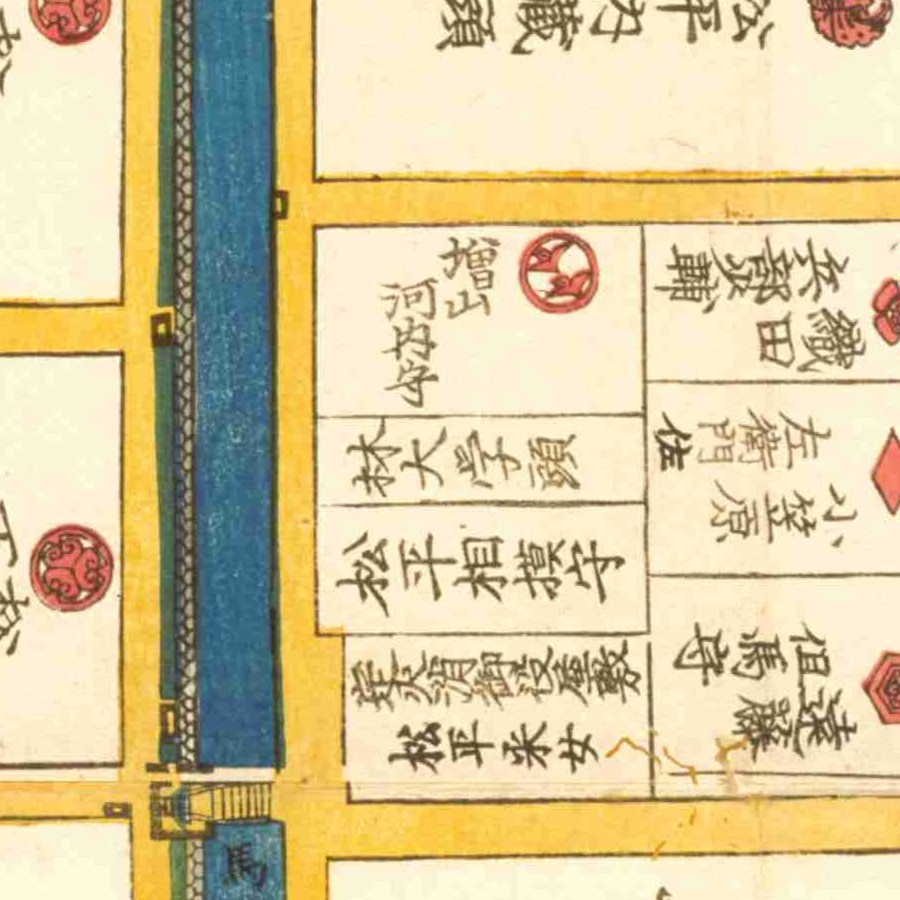 増山
河内守
林大学頭
松平相摸守
定火消御役屋敷
松平采女
織田
兵部大輔
小笠原
左衛門佐
遠藤
但馬守
馬